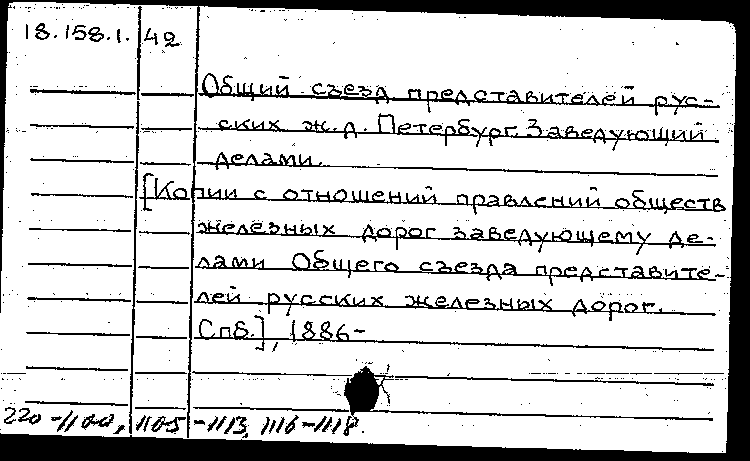 18.158.1. 42
Общий съезд представителей рус-
ских ж.д. Петербург. Заведующий
делами.
[Копии с отношений правлений обществ
железных дорог заведующему де-
лами Общего съезда представите-
лей русских железных дорог.
Спб.], 1886-
220-1100, 1105-1113, 1116-1118.